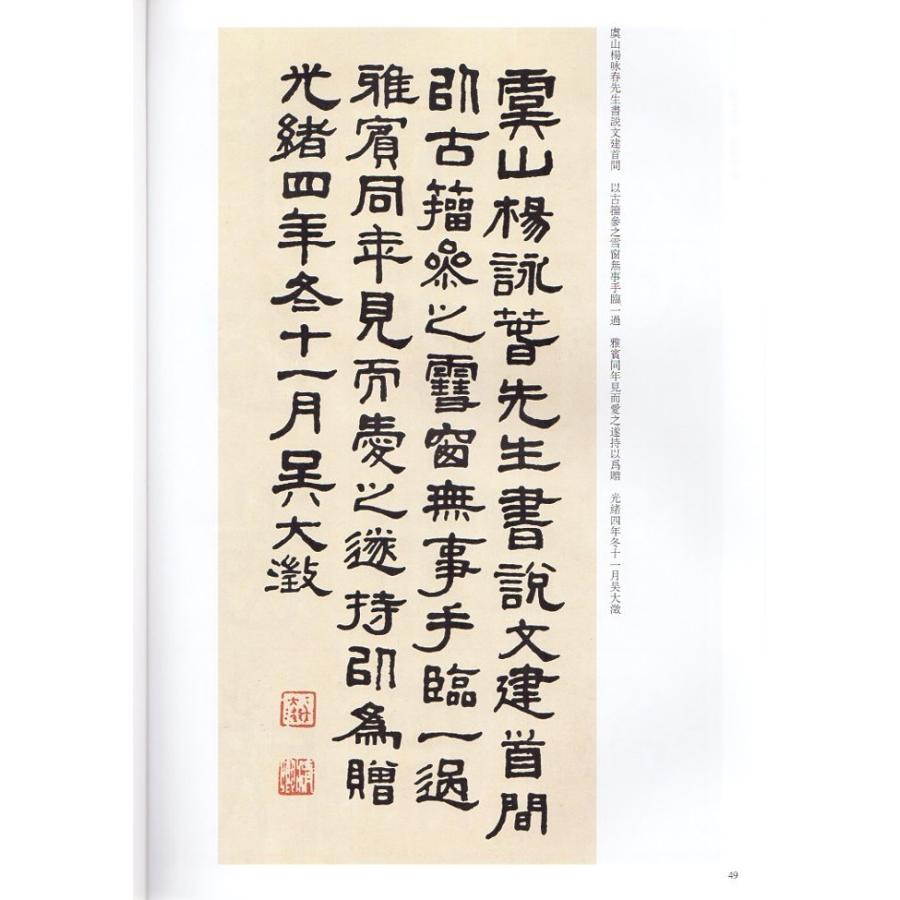 虞山楊咏春先生書說文建首間　以古籀參之雪窗無事手臨一過　雅賓同年見而愛之遂持以爲贈　光緒四年冬十一月吳大澂
虞山楊詠春先生書說文建首間
㠯古籀參之雪窗無事手臨一過
雅賓同年見而愛之遂持㠯為贈
光緒四年冬十一月吳大澂
49